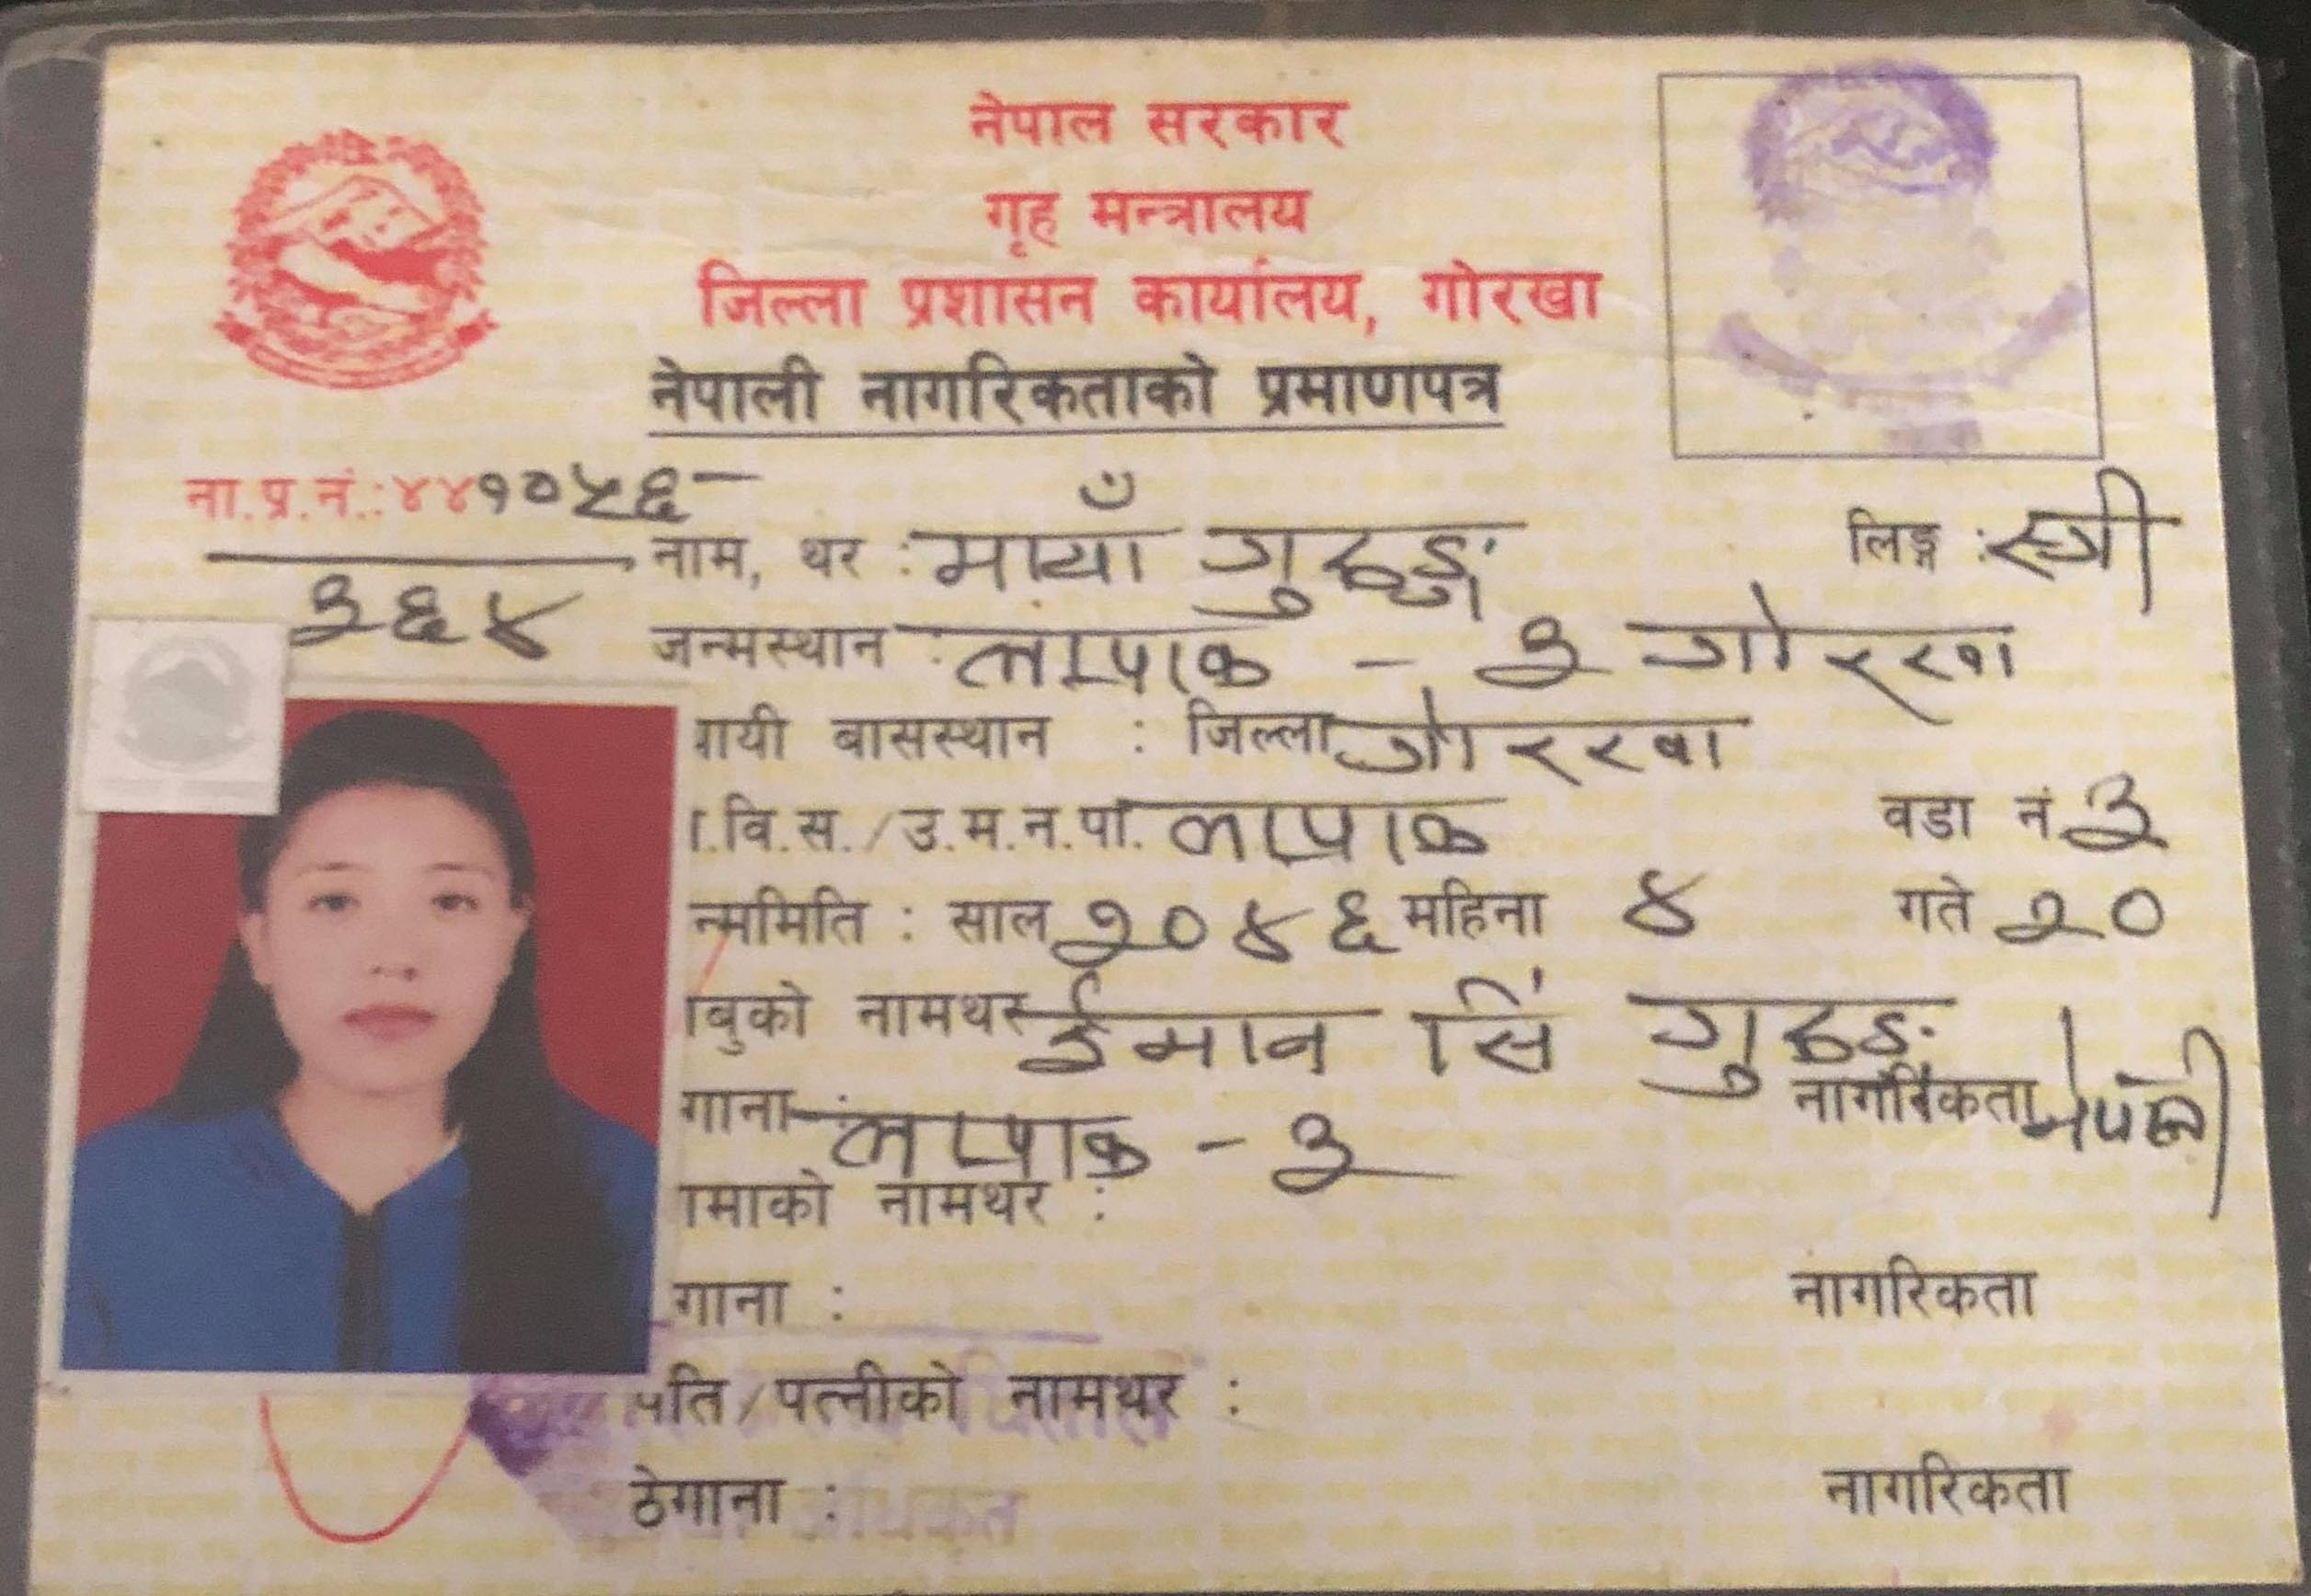 नेपाल सरकार
गृह मन्त्रालय
जिल्ला प्रशासन कार्यालय, गोरखा
नेपाली नागरिकताको प्रमाणपत्र
ना.प्र.नं.:४४१०५६
३६४
नाम, थर : मायाँ गुरुङ लिङ्ग : स्त्री
जन्मस्थान : लाप्राक - ३ गोरखा
ायी बासस्थान : जिल्ला गोरखा
ा.वि.स./उ.म.न.पा. लाप्राक वडा नं ३
न्ममिति : साल २०४६ महिना ४ गते २०
ाबुको नामथर ईमान सिं गुरुङ
गाना लाप्राक - ३ नागरिकता नेपाली
ामाको नामथर :
गाना : नागरिकता
पति/पत्नीको नामथर :
ठेगाना : नागरिकता